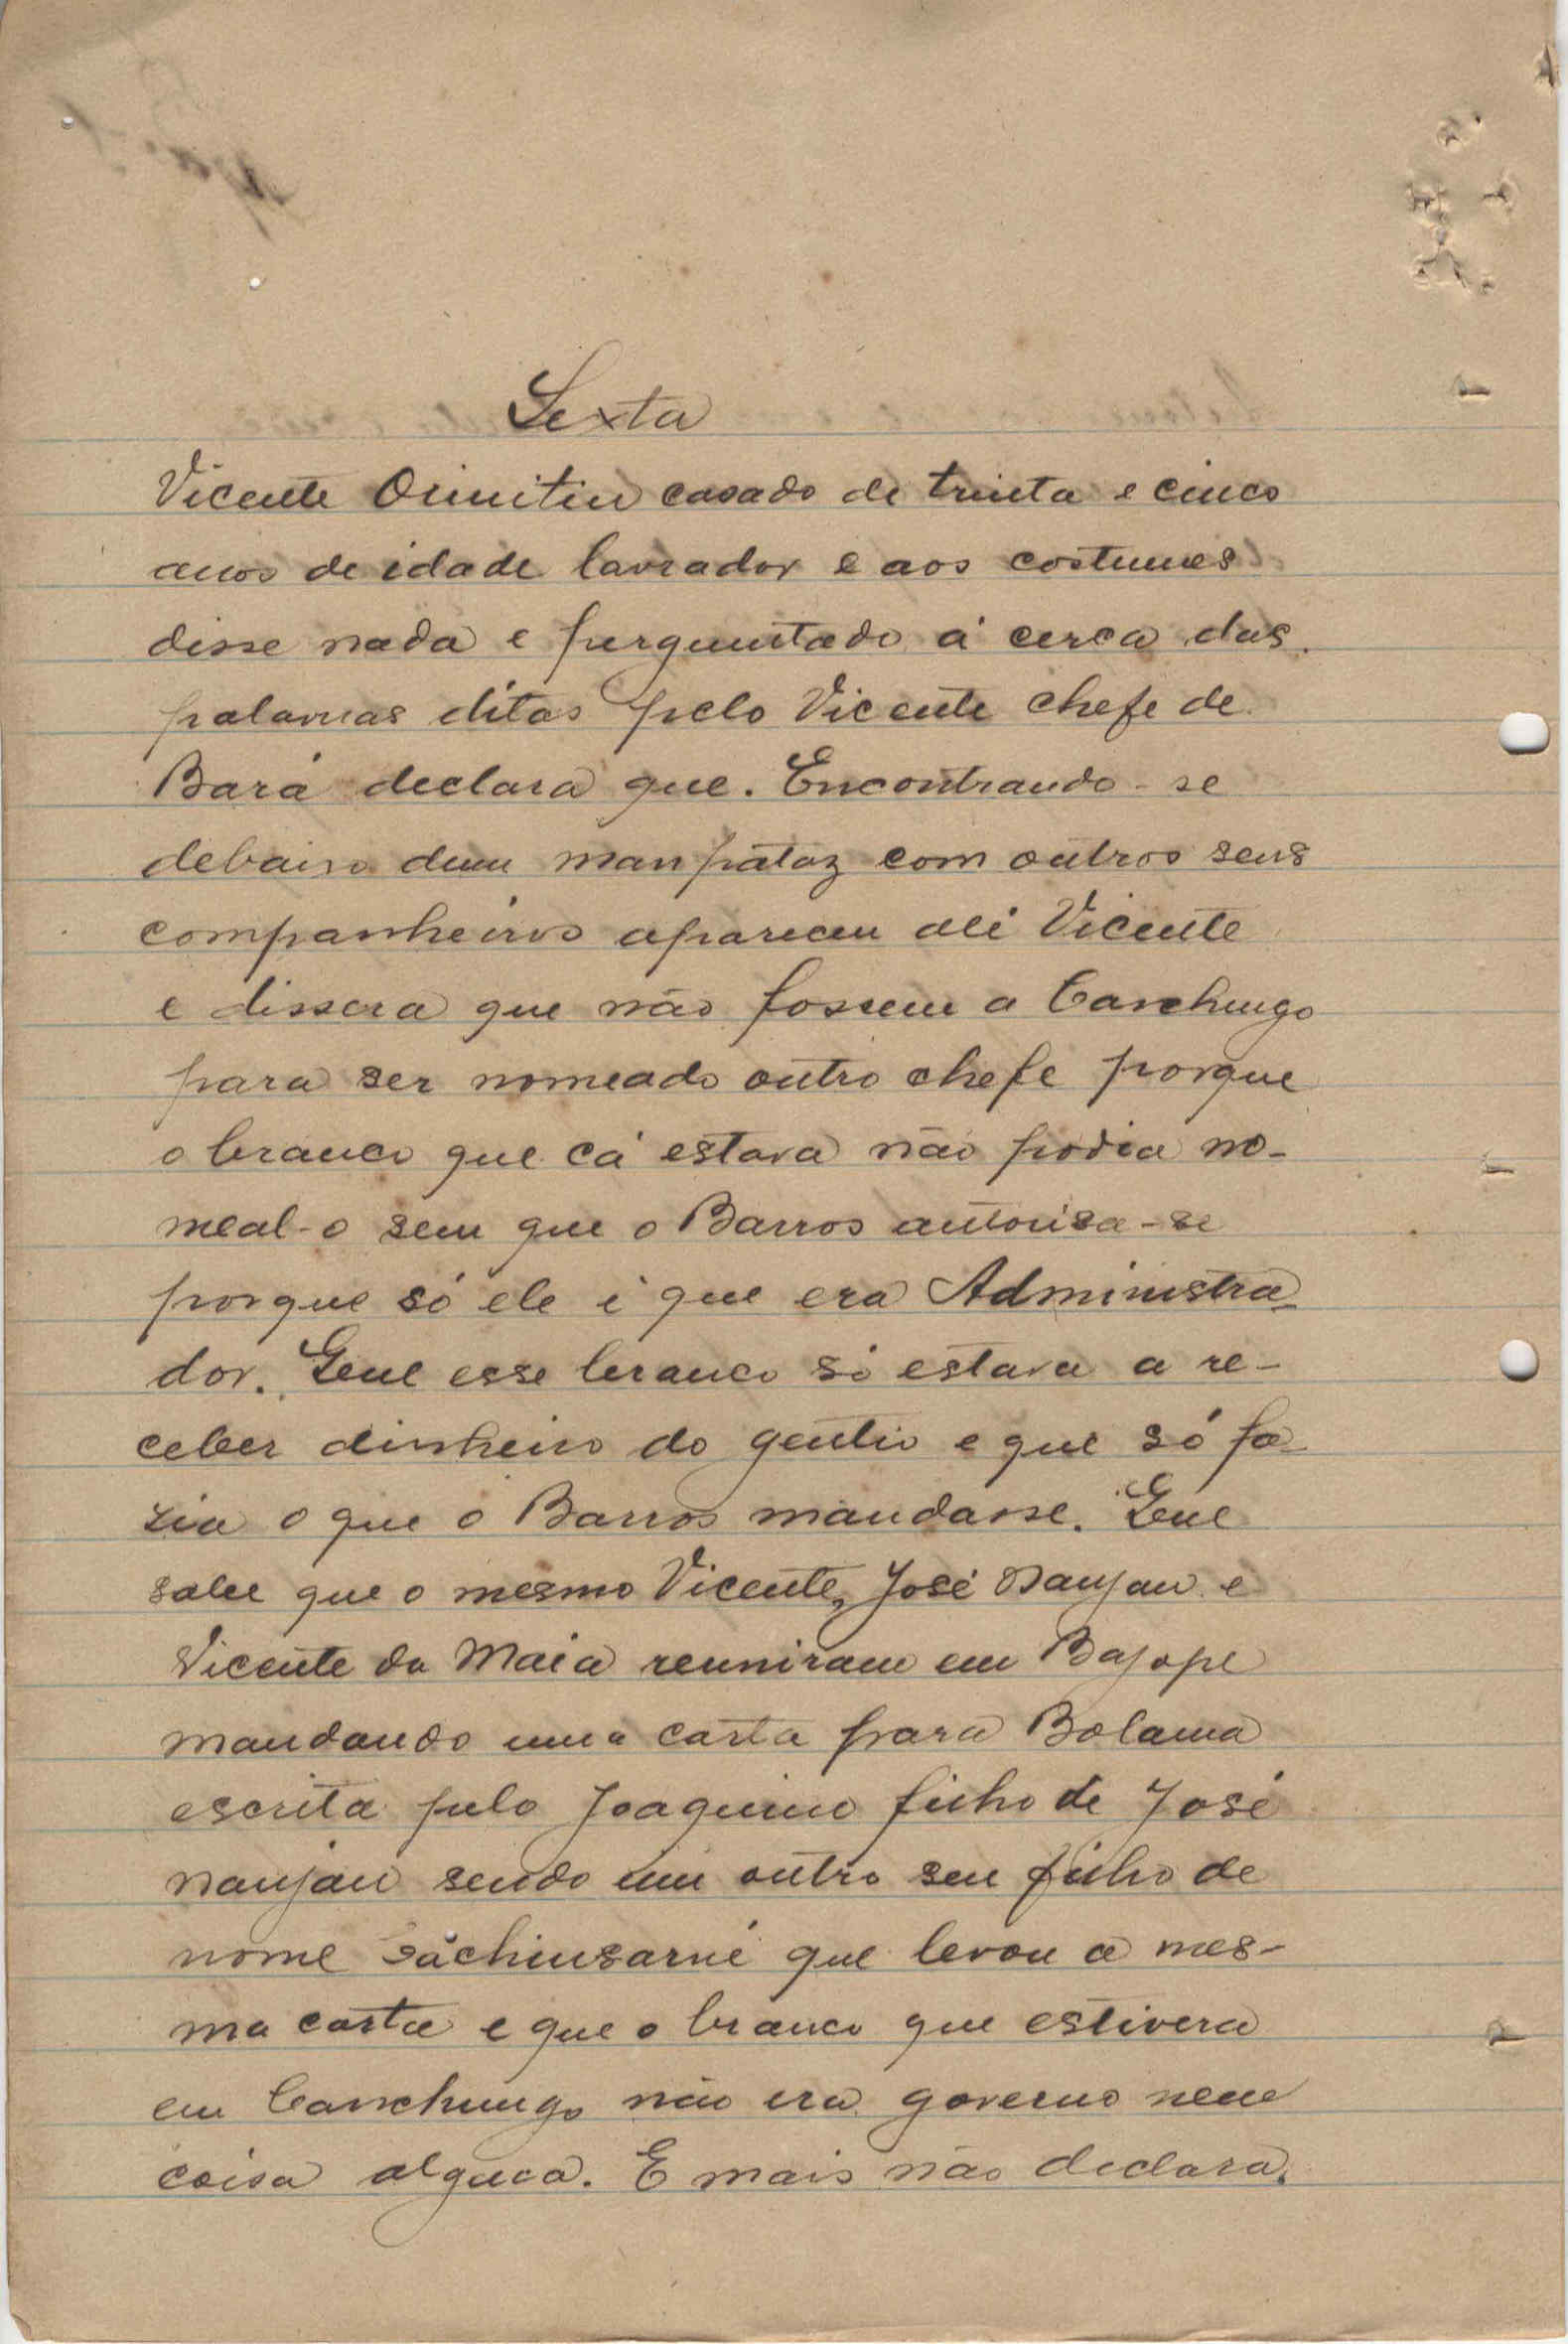 Sexta
Vicente casado de trinta e cinco
anos de idade lavrador e aos costumes
disse nada e perguntado á cerca das
palavras ditas pelo Vicente chefe de
Bará declara que. Encontrando-se
debaixo dum manpataz com outros seus
companheiros apareceu ali Vicente
e dissera que não fossem a Canchungo
para ser nomeado outro chefe porque
o branco que cá estava não podia no-
meal-o sem que o Barros autorisa-se
porque só ele é que era Administra-
dor. Que esse branco só estava a re-
ceber dinheiro do gentio e que só fa-
zia o que o Barros mandasse. Que
sabe que o mesmo Vicente, José Nanjan e
Vicente da Maia reuniram em Bajope
mandando uma carta para Bolama
escrita pelo Joaquim filho de José
Nanjan sendo um outro seu filho de
nome que levou a mes-
ma carta e que o branco que estivera
em Canchungo não era governo nem
coisa alguma. E mais não declara.